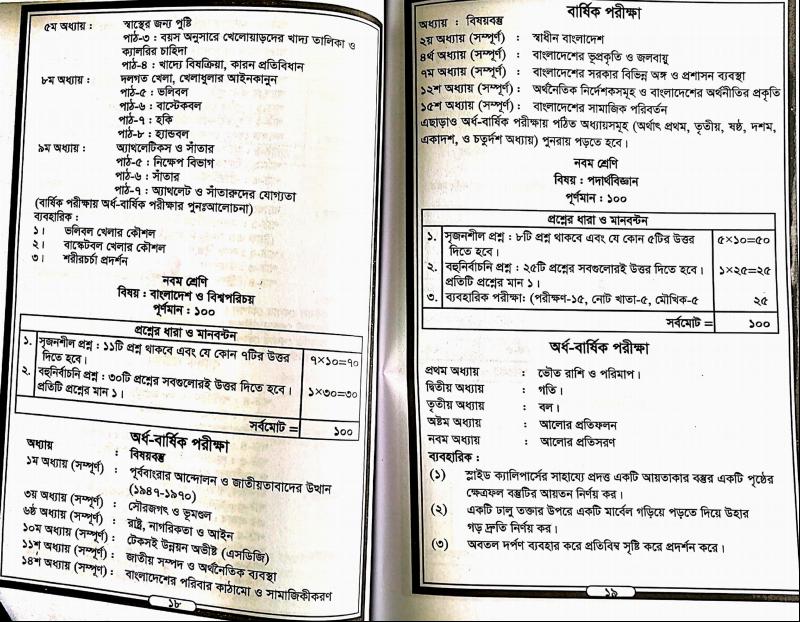 ৫ম অধ্যায় : স্বাস্থের জন্য পুষ্টি
পাঠ-৩ : বয়স অনুসারে খেলোয়াড়দের খাদ্য তালিকা ও
ক্যালরির চাহিদা
পাঠ-৪ : খাদ্যে বিষক্রিয়া, কারন প্রতিবিধান
৮ম অধ্যায় : দলগত খেলা, খেলাধুলার আইনকানুন
পাঠ-৫ : ভলিবল
পাঠ-৬ : বাস্টেকবল
পাঠ-৭ : হকি
পাঠ-৮ : হ্যান্ডবল
৯ম অধ্যায় : অ্যাথলেটিকস ও সাঁতার
পাঠ-৫ : নিক্ষেপ বিভাগ
পাঠ-৬ : সাঁতার
পাঠ-৭ : অ্যাথলেট ও সাঁতারুদের যোগ্যতা
(বার্ষিক পরীক্ষায় অর্ধ-বার্ষিক পরীক্ষার পুনঃআলোচনা)
ব্যবহারিক :
১। ভলিবল খেলার কৌশল
২। বাস্কেটবল খেলার কৌশল
৩। শরীরচর্চা প্রদর্শন
নবম শ্রেণি
বিষয় : বাংলাদেশ ও বিশ্বপরিচয়
পূর্ণমান : ১০০
প্রশ্নের ধারা ও মানবন্টন
১. সৃজনশীল প্রশ্ন : ১১টি প্রশ্ন থাকবে এবং যে কোন ৭টির উত্তর
দিতে হবে। ৭×১০=৭০
২. বহুনির্বাচনি প্রশ্ন : ৩০টি প্রশ্নের সবগুলোরই উত্তর দিতে হবে।
প্রতিটি প্রশ্নের মান ১। ১×৩০=৩০
সর্বমোট = ১০০
অর্ধ-বার্ষিক পরীক্ষা
অধ্যায় : বিষয়বস্তু
১ম অধ্যায় (সম্পূর্ণ) : পূর্ববাংরার আন্দোলন ও জাতীয়তাবাদের উত্থান
(১৯৪৭-১৯৭০)
৩য় অধ্যায় (সম্পূর্ণ) : সৌরজগৎ ও ভূমণ্ডল
৬ষ্ঠ অধ্যায় (সম্পূর্ণ) : রাষ্ট্র, নাগরিকতা ও আইন
১০ম অধ্যায় (সম্পূর্ণ) : টেকসই উন্নয়ন অভীষ্ট (এসডিজি)
১১শ অধ্যায় (সম্পূর্ণ) : জাতীয় সম্পদ ও অর্থনৈতিক ব্যবস্থা
১৪শ অধ্যায় (সম্পূর্ণ) : বাংলাদেশের পরিবার কাঠামো ও সামাজিকীকরণ
১৮
বার্ষিক পরীক্ষা
অধ্যায় : বিষয়বস্তু
২য় অধ্যায় (সম্পূর্ণ) : স্বাধীন বাংলাদেশ
৪র্থ অধ্যায় (সম্পূর্ণ) : বাংলাদেশের ভূপ্রকৃতি ও জলবায়ু
৭ম অধ্যায় (সম্পূর্ণ) : বাংলাদেশের সরকার বিভিন্ন অঙ্গ ও প্রশাসন ব্যবস্থা
১২শ অধ্যায় (সম্পূর্ণ) : অর্থনৈতিক নির্দেশকসমূহ ও বাংলাদেশের অর্থনীতির প্রকৃতি
১৫শ অধ্যায় (সম্পূর্ণ) : বাংলাদেশের সামাজিক পরিবর্তন
এছাড়াও অর্ধ-বার্ষিক পরীক্ষায় পঠিত অধ্যায়সমূহ (অর্থাৎ প্রথম, তৃতীয়, ষষ্ঠ, দশম,
একাদশ, ও চতুর্দশ অধ্যায়) পুনরায় পড়তে হবে।
নবম শ্রেণি
বিষয় : পদার্থবিজ্ঞান
পূর্ণমান : ১০০
প্রশ্নের ধারা ও মানবন্টন
১. সৃজনশীল প্রশ্ন : ৮টি প্রশ্ন থাকবে এবং যে কোন ৫টির উত্তর
দিতে হবে। ৫×১০=৫০
২. বহুনির্বাচনি প্রশ্ন : ২৫টি প্রশ্নের সবগুলোরই উত্তর দিতে হবে।
প্রতিটি প্রশ্নের মান ১। ১×২৫=২৫
৩. ব্যবহারিক পরীক্ষা: (পরীক্ষণ-১৫, নোট খাতা-৫, মৌখিক-৫ ২৫
সর্বমোট = ১০০
অর্ধ-বার্ষিক পরীক্ষা
প্রথম অধ্যায় : ভৌত রাশি ও পরিমাপ।
দ্বিতীয় অধ্যায় : গতি।
তৃতীয় অধ্যায় : বল।
অষ্টম অধ্যায় : আলোর প্রতিফলন
নবম অধ্যায় : আলোর প্রতিসরণ
ব্যবহারিক :
(১) স্লাইড ক্যালিপার্সের সাহায্যে প্রদত্ত একটি আয়তাকার বস্তুর একটি পৃষ্ঠের
ক্ষেত্রফল বস্তুটির আয়তন নির্ণয় কর।
(২) একটি ঢালু তক্তার উপরে একটি মার্বেল গড়িয়ে পড়তে দিয়ে উহার
গড় দ্রুতি নির্ণয় কর।
(৩) অবতল দর্পণ ব্যবহার করে প্রতিবিম্ব সৃষ্টি করে প্রদর্শন করে।
১৯